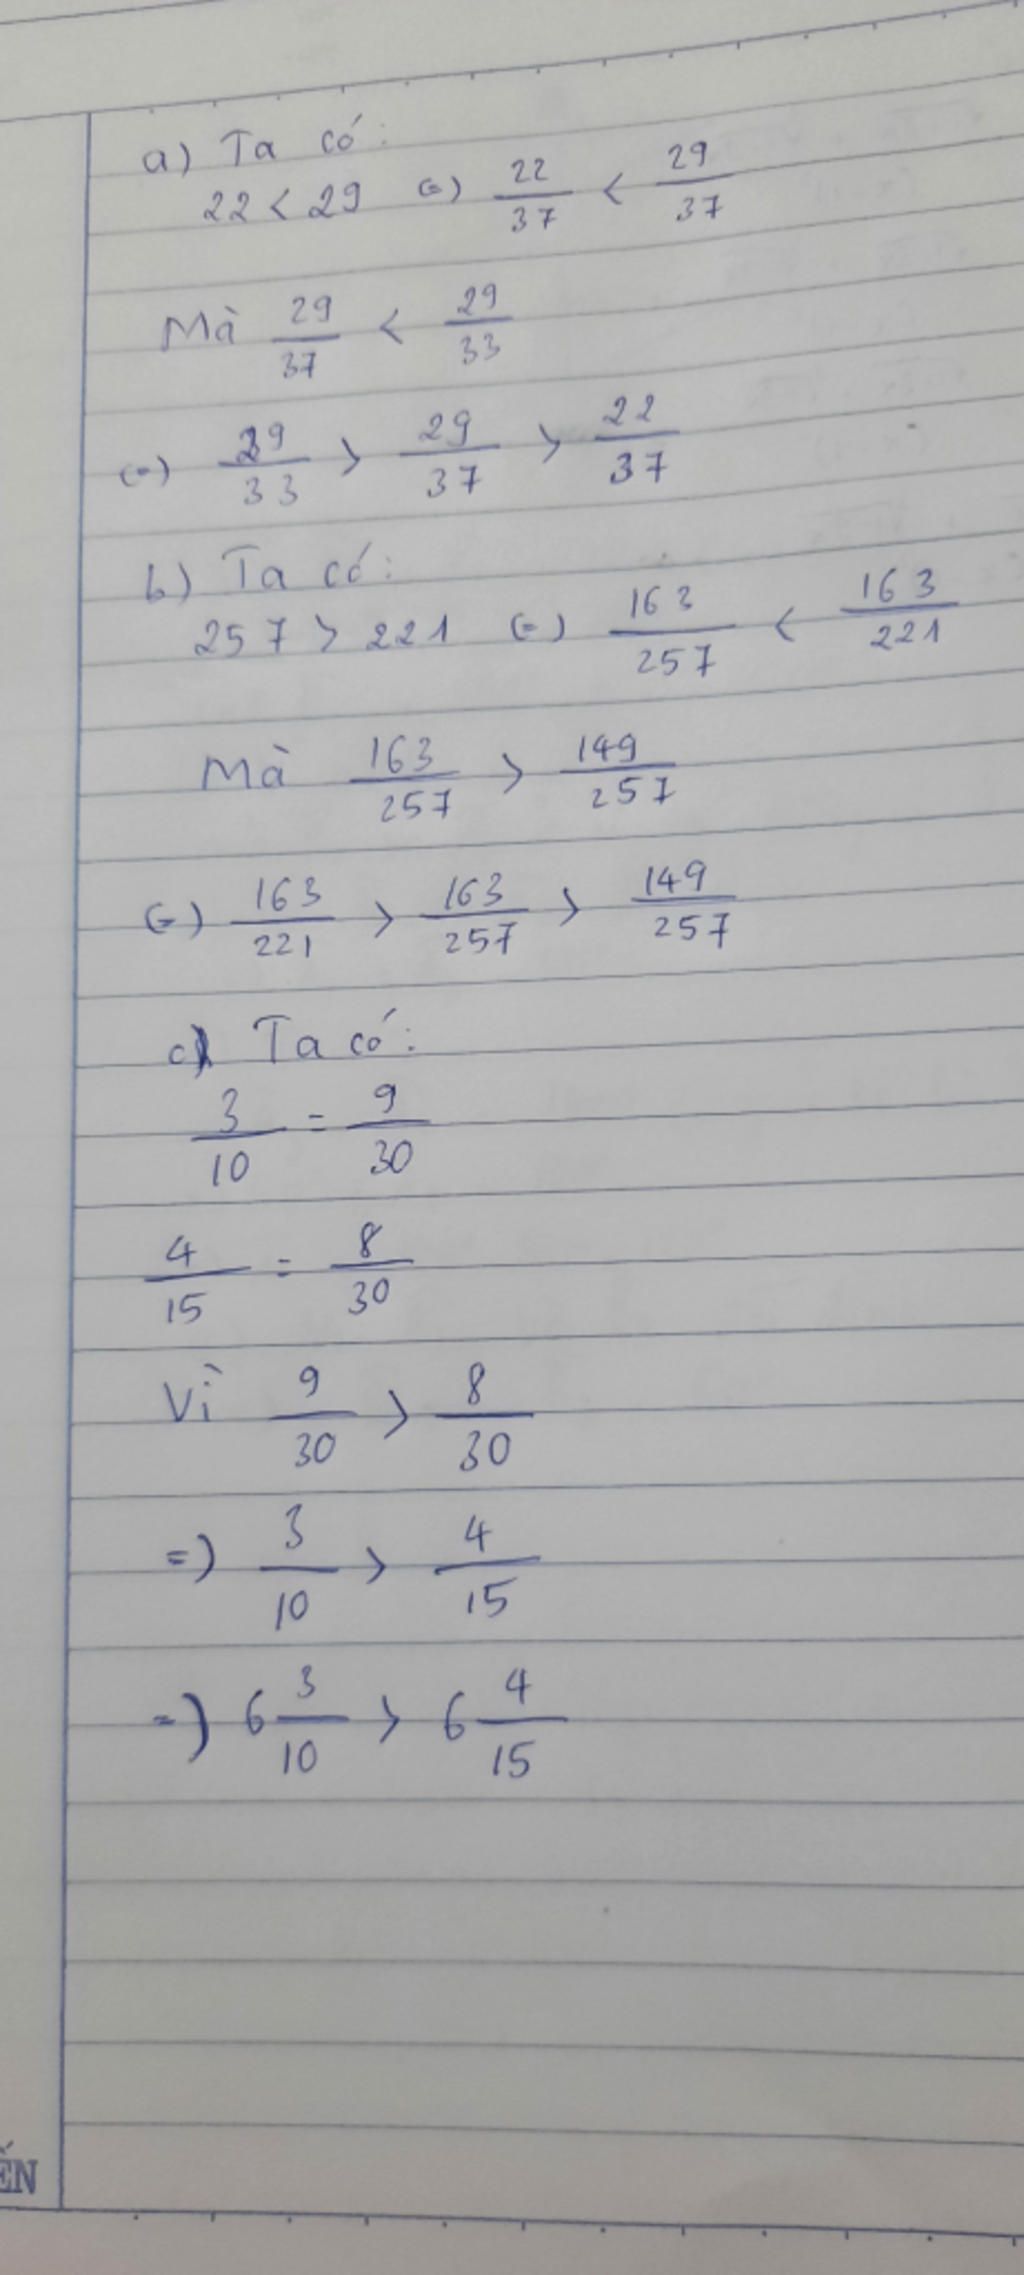 a) Ta có:
22 < 29 (=) 22/37 < 29/37
Mà 29/37 < 29/33
(=) 29/33 > 29/37 > 22/37
b) Ta có:
257 > 221 (=) 163/257 < 163/221
Mà 163/257 > 149/257
(=) 163/221 > 163/257 > 149/257
c) Ta có:
3/10 = 9/30
4/15 = 8/30
Vì 9/30 > 8/30
=) 3/10 > 4/15
=) 6 3/10 > 6 4/15
ẾN